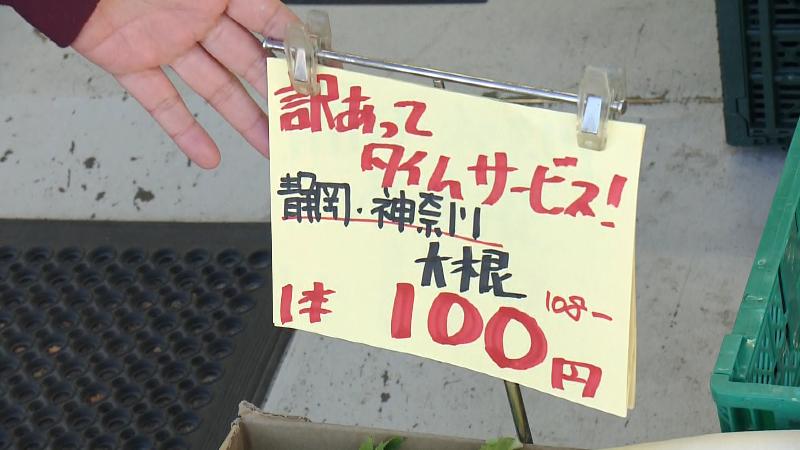 訳あって
タイムサービス!
静岡・神奈川
大根
1本 100円 108-